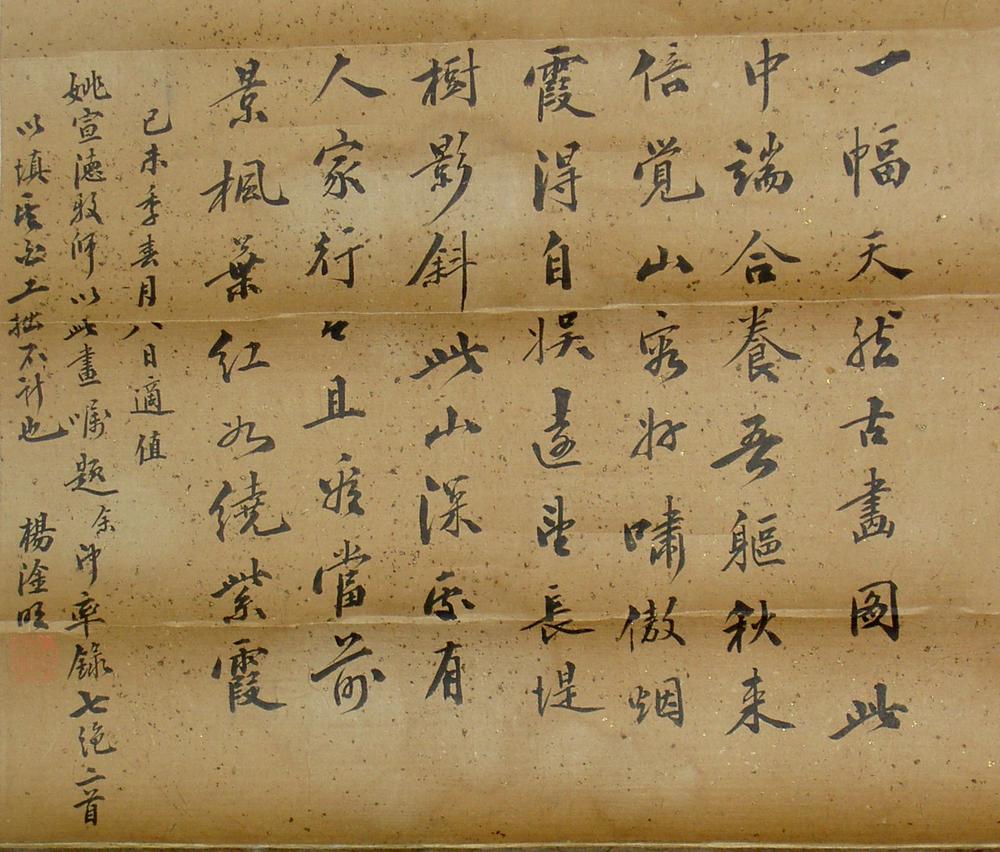 一幅天然古畫圖此
中端合養吾軀秋来
倍覺山容好嘯傲烟
霞得自娱遠望長堤
樹影斜此山深處有
人家行行且止當前
景楓葉紅於繞紫霞
己未季春月八日適值
姚宣德牧師以此畫嘱題余沖率錄七絶二首
以填空白工拙不計也
楊淦